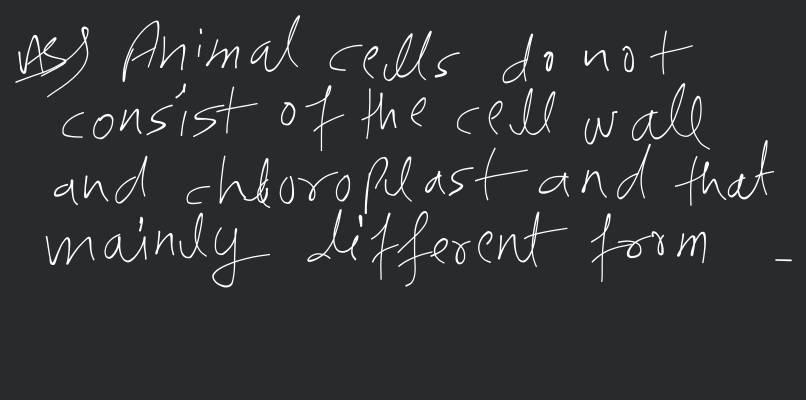 Ans) Animal cells do not
consist of the cell wall
and chloroplast and that
mainly different form -